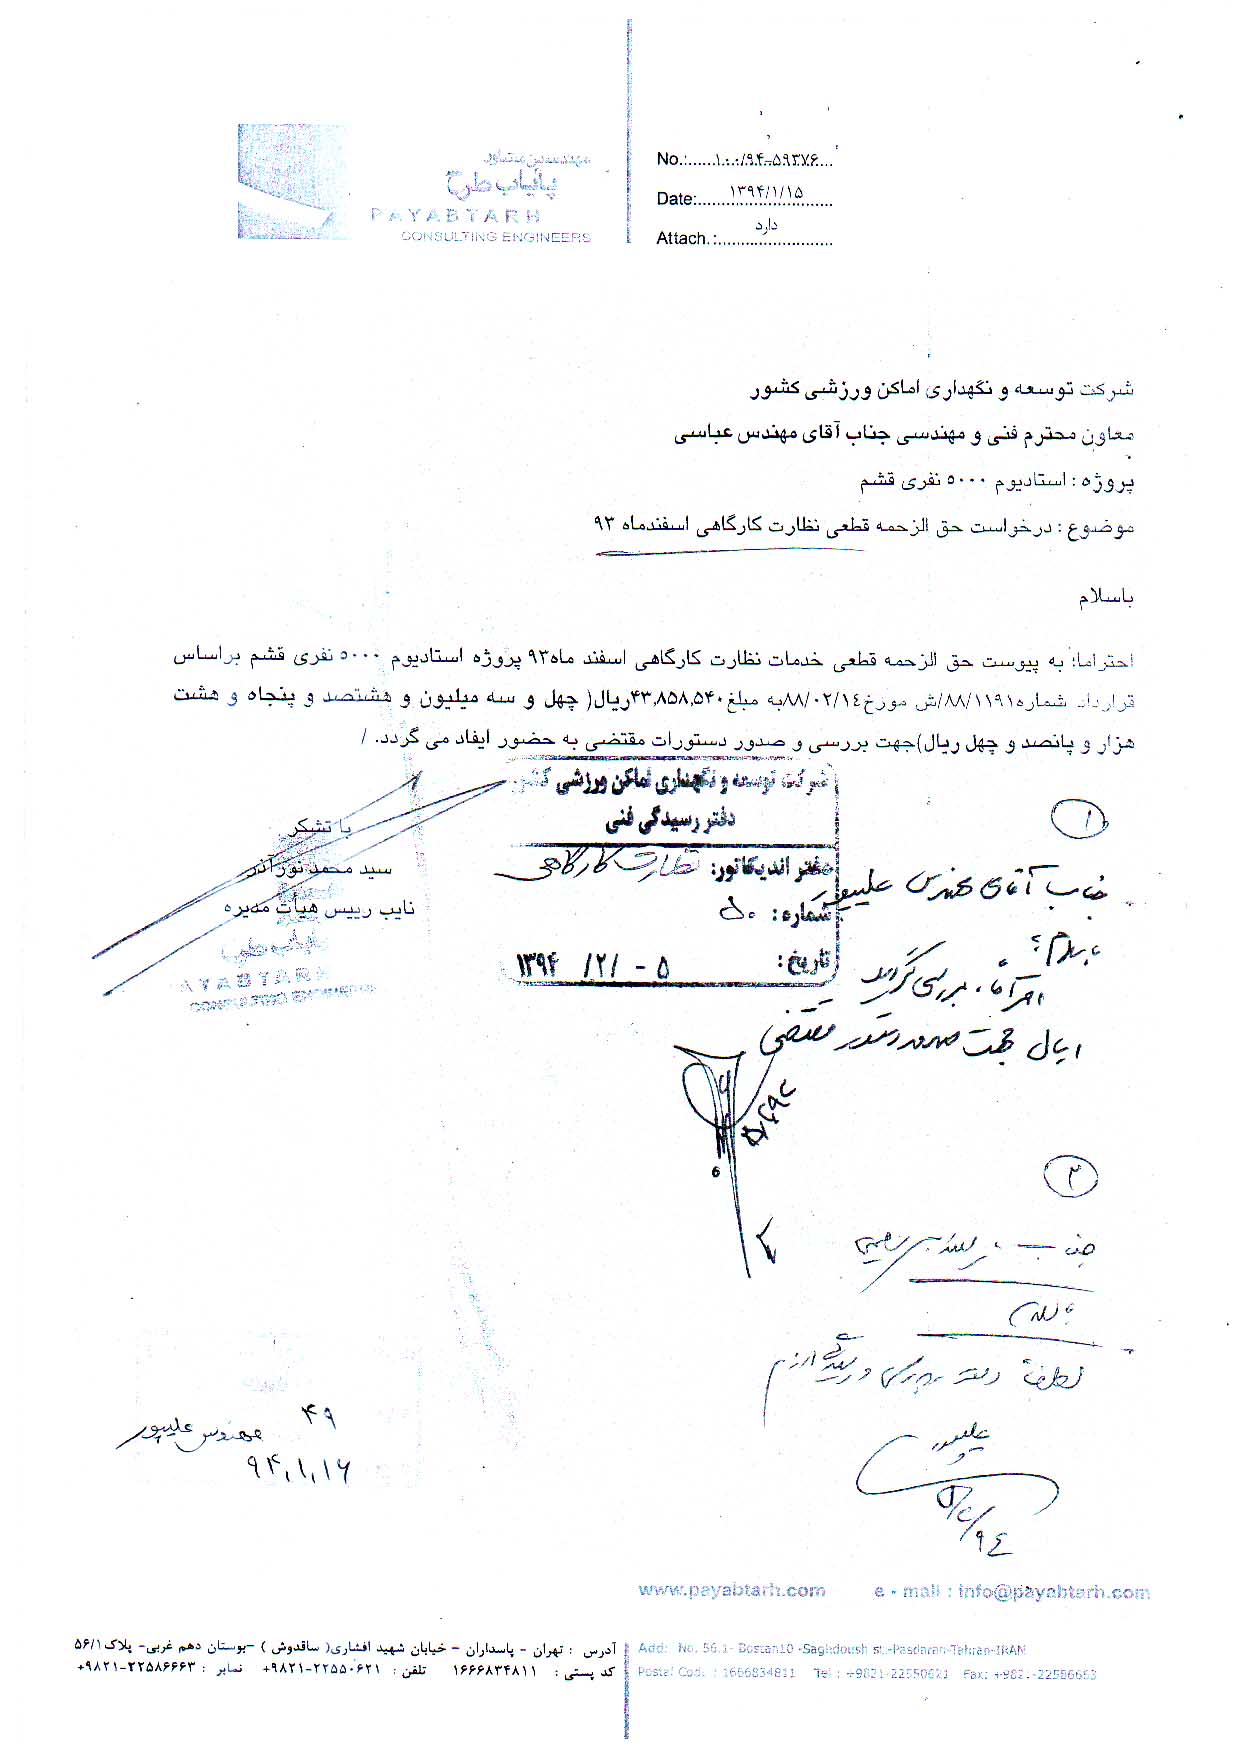 پایاب طرح
PAYABTARH
CONSULTING ENGINEERS
No.:......۱۰۰/۹۴-۵۹۳۷۶...
Date:......۱۳۹۴/۱/۱۵......
Attach.:......دارد......
شرکت توسعه و نگهداری اماکن ورزشی کشور
معاون محترم فنی و مهندسی جناب آقای مهندس عباسی
پروژه : استادیوم ۵۰۰۰ نفری قشم
موضوع : درخواست حق الزحمه قطعی نظارت کارگاهی اسفندماه ۹۳
باسلام
احتراما؛ به پیوست حق الزحمه قطعی خدمات نظارت کارگاهی اسفند ماه۹۳ پروژه استادیوم ۵۰۰۰ نفری قشم براساس
قرارداد شماره۸۸/۱۱۹۱/ش مورخ۸۸/۰۲/۱٤به مبلغ۴۳,۸۵۸,۵۴۰ریال( چهل و سه میلیون و هشتصد و پنجاه و هشت
هزار و پانصد و چهل ریال)جهت بررسی و صدور دستورات مقتضی به حضور ایفاد می گردد. /
با تشکر
سید محمد نورآذر
نایب رییس هیأت مدیره
پایاب طرح
شرکت توسعه و نگهداری اماکن ورزشی کشور
دفتر رسیدگی فنی
دفتر اندیکاتور: نظارت کارگاهی
شماره: ۵۰
تاریخ: ۵ - /۲/ ۱۳۹۴
۱
جناب آقای مهندس علیپور
باسلام؛
بررسی گردید
جهت صدور دستور مقتضی
۲
جناب
باسلام
لطفاً
علیپور
۹٤/۲/۵
۴۹
مهندس علیپور
۹۴,۱,۱۶
www.payabtarh.com e - mail : info@payabtarh.com
آدرس : تهران - پاسداران - خیابان شهید افشاری( ساقدوش ) -بوستان دهم غربی- پلاک ۵۶/۱
کد پستی : ۱۶۶۶۸۳۴۸۱۱ تلفن : ۲۲۵۵۰۶۲۱-۹۸۲۱+ نمابر : ۲۲۵۸۶۶۶۳-۹۸۲۱+
Add: No. 56.1- Bostan10 -Saghdoush st.-Pasdaran-Tehran-IRAN
Postal Cod. : 1666834811 Tel : +9821-22550621 Fax: +982.-22586663